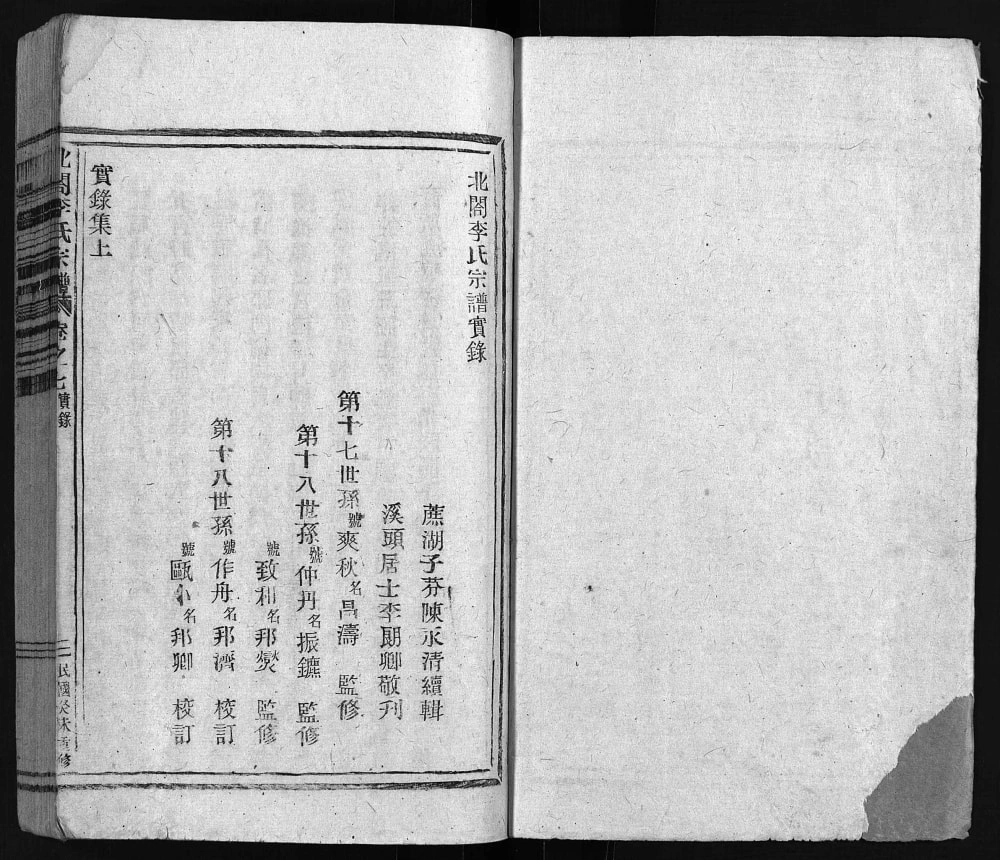 北閣李氏宗譜實錄
蔗湖子芬陳永清續輯
溪頭居士李朗卿敬刋
第十七世孫號爽秋名昌濤 監修
第十八世孫號仲丹名振鑣 監修
號致和名邦爕 監修
第十八世孫號作舟名邦濟 校訂
號甌小名邦卿 校訂
實錄集上
北閣李氏宗譜 卷之十七 實錄
民國癸未重修